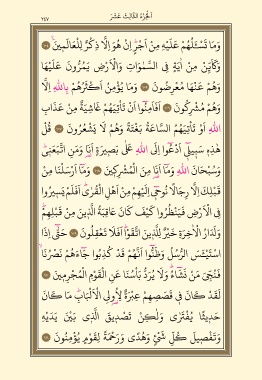 الجزء الثالث عشر
٢٤٧
وَمَا تَسْـَٔلُهُمْ عَلَيْهِ مِنْ اَجْرٍۜ اِنْ هُوَ اِلَّا ذِكْرٌ لِلْعَالَم۪ينَ
وَكَاَيِّنْ مِنْ اٰيَةٍ فِي السَّمٰوَاتِ وَالْاَرْضِ يَمُرُّونَ عَلَيْهَا
وَهُمْ عَنْهَا مُعْرِضُونَ وَمَا يُؤْمِنُ اَكْثَرُهُمْ بِاللّٰهِ اِلَّا
وَهُمْ مُشْرِكُونَ اَفَاَمِنُٓوا اَنْ تَأْتِيَهُمْ غَاشِيَةٌ مِنْ عَذَابِ
اللّٰهِ اَوْ تَأْتِيَهُمُ السَّاعَةُ بَغْتَةً وَهُمْ لَا يَشْعُرُونَ قُلْ
هٰذِه۪ سَب۪يل۪ٓي اَدْعُٓوا اِلَى اللّٰهِ عَلٰى بَص۪يرَةٍ اَنَا۬ وَمَنِ اتَّبَعَن۪يۜ
وَسُبْحَانَ اللّٰهِ وَمَٓا اَنَا۬ مِنَ الْمُشْرِك۪ينَ وَمَٓا اَرْسَلْنَا مِنْ
قَبْلِكَ اِلَّا رِجَالًا نُوح۪ٓي اِلَيْهِمْ مِنْ اَهْلِ الْقُرٰىۜ اَفَلَمْ يَس۪يرُوا
فِي الْاَرْضِ فَيَنْظُرُوا كَيْفَ كَانَ عَاقِبَةُ الَّذ۪ينَ مِنْ قَبْلِهِمْۜ
وَلَدَارُ الْاٰخِرَةِ خَيْرٌ لِلَّذ۪ينَ اتَّقَوْاۜ اَفَلَا تَعْقِلُونَ حَتّٰٓى اِذَا
اسْتَيْـَٔسَ الرُّسُلُ وَظَنُّٓوا اَنَّهُمْ قَدْ كُذِبُوا جَٓاءَهُمْ نَصْرُنَاۙ
فَنُجِّيَ مَنْ نَشَٓاءُۜ وَلَا يُرَدُّ بَأْسُنَا عَنِ الْقَوْمِ الْمُجْرِم۪ينَ
لَقَدْ كَانَ ف۪ي قَصَصِهِمْ عِبْرَةٌ لِاُو۬لِي الْاَلْبَابِۜ مَا كَانَ
حَد۪يثًا يُفْتَرٰى وَلٰكِنْ تَصْد۪يقَ الَّذ۪ي بَيْنَ يَدَيْهِ
وَتَفْص۪يلَ كُلِّ شَيْءٍ وَهُدًى وَرَحْمَةً لِقَوْمٍ يُؤْمِنُونَ